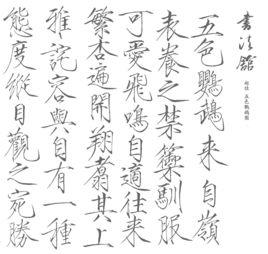 書法館
趙佶 五色鸚鵡圖
五色鸚鵡來自嶺
表養之禁籞馴服
可愛飛鳴自適往來
繁杏遍開翔翥其上
雅詫容與自有一種
態度縱目觀之宛勝